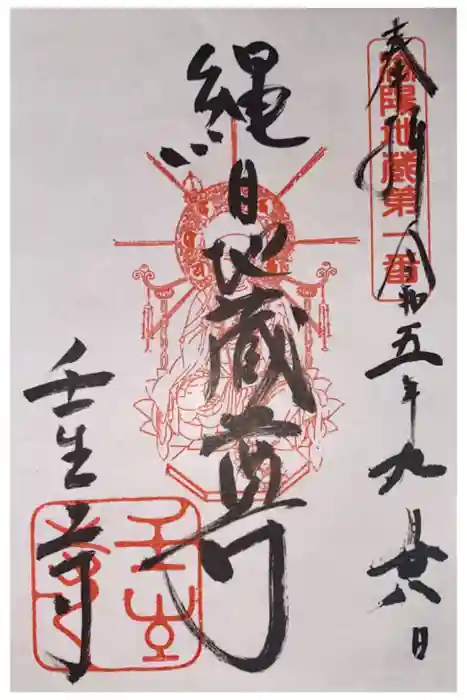 奉拝
地蔵第一番
令和五年九月廿八日
縄目地蔵尊
壬生寺
壬生